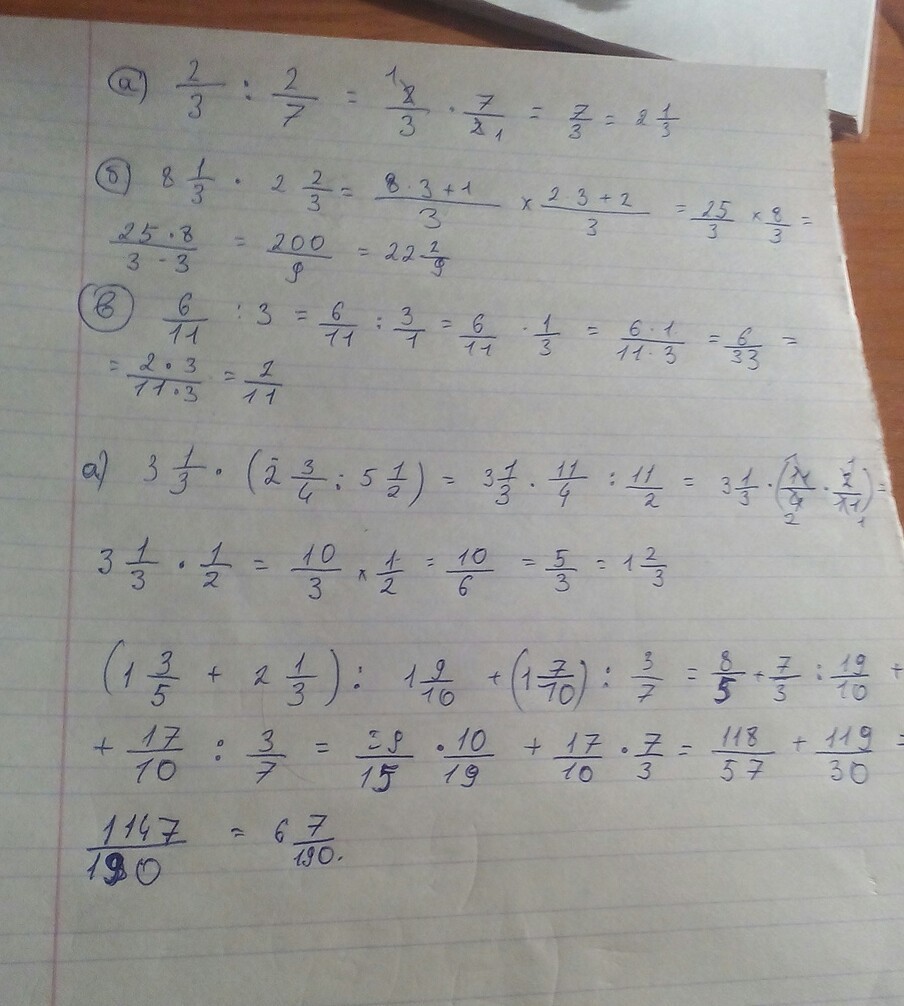 а) 2/3 : 2/7 = 2/3 · 7/2 = 7/3 = 2 1/3
б) 8 1/3 · 2 2/3 = (8·3+1)/3 × (2·3+2)/3 = 25/3 × 8/3 =
(25·8)/(3·3) = 200/9 = 22 2/9
в) 6/11 : 3 = 6/11 : 3/1 = 6/11 · 1/3 = (6·1)/(11·3) = 6/33 =
= (2·3)/(11·3) = 2/11
а) 3 1/3 · (2 3/4 : 5 1/2) = 3 1/3 · 11/4 : 11/2 = 3 1/3 · (11/4 · 2/11) =
3 1/3 · 1/2 = 10/3 × 1/2 = 10/6 = 5/3 = 1 2/3
(1 3/5 + 2 1/3) : 1 9/10 + (1 7/10) : 3/7 = 8/5 + 7/3 : 19/10 +
+ 17/10 : 3/7 = 59/15 · 10/19 + 17/10 · 7/3 = 118/57 + 119/30 =
1147/190 = 6 7/190.